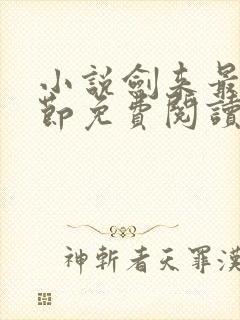 小說劍来最
節免費閱讀
神斬者天罪漢